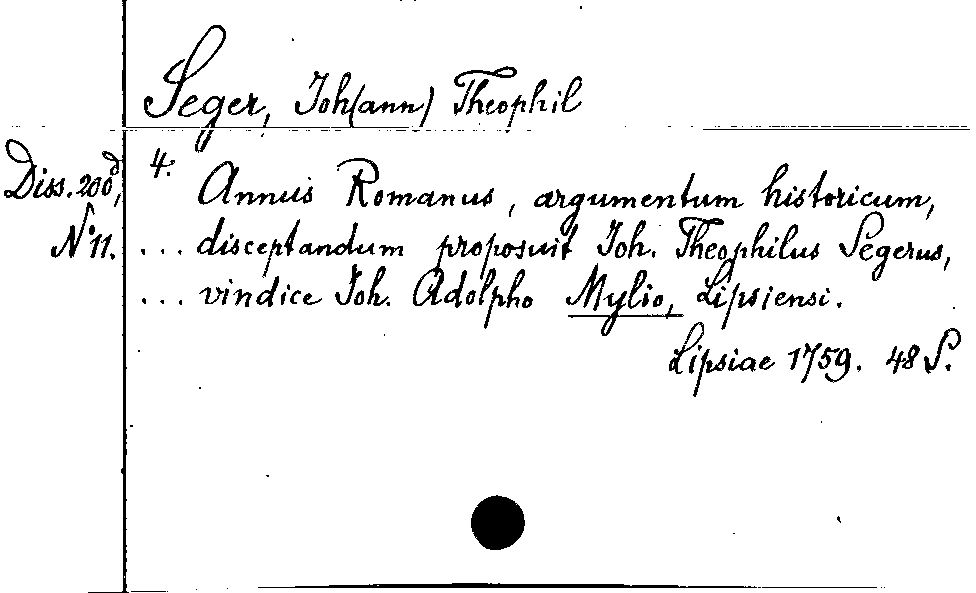 Seger, Joh(ann) Theophil
Diss. 200d,
N: 11.
4.
Annus Romanus, argumentum historicum,
... disceptandum proposuit Joh. Theophilus Segerus,
... vindice Joh. Adolpho Mylio, Lipsiensi.
Lipsiae 1759. 48 S.